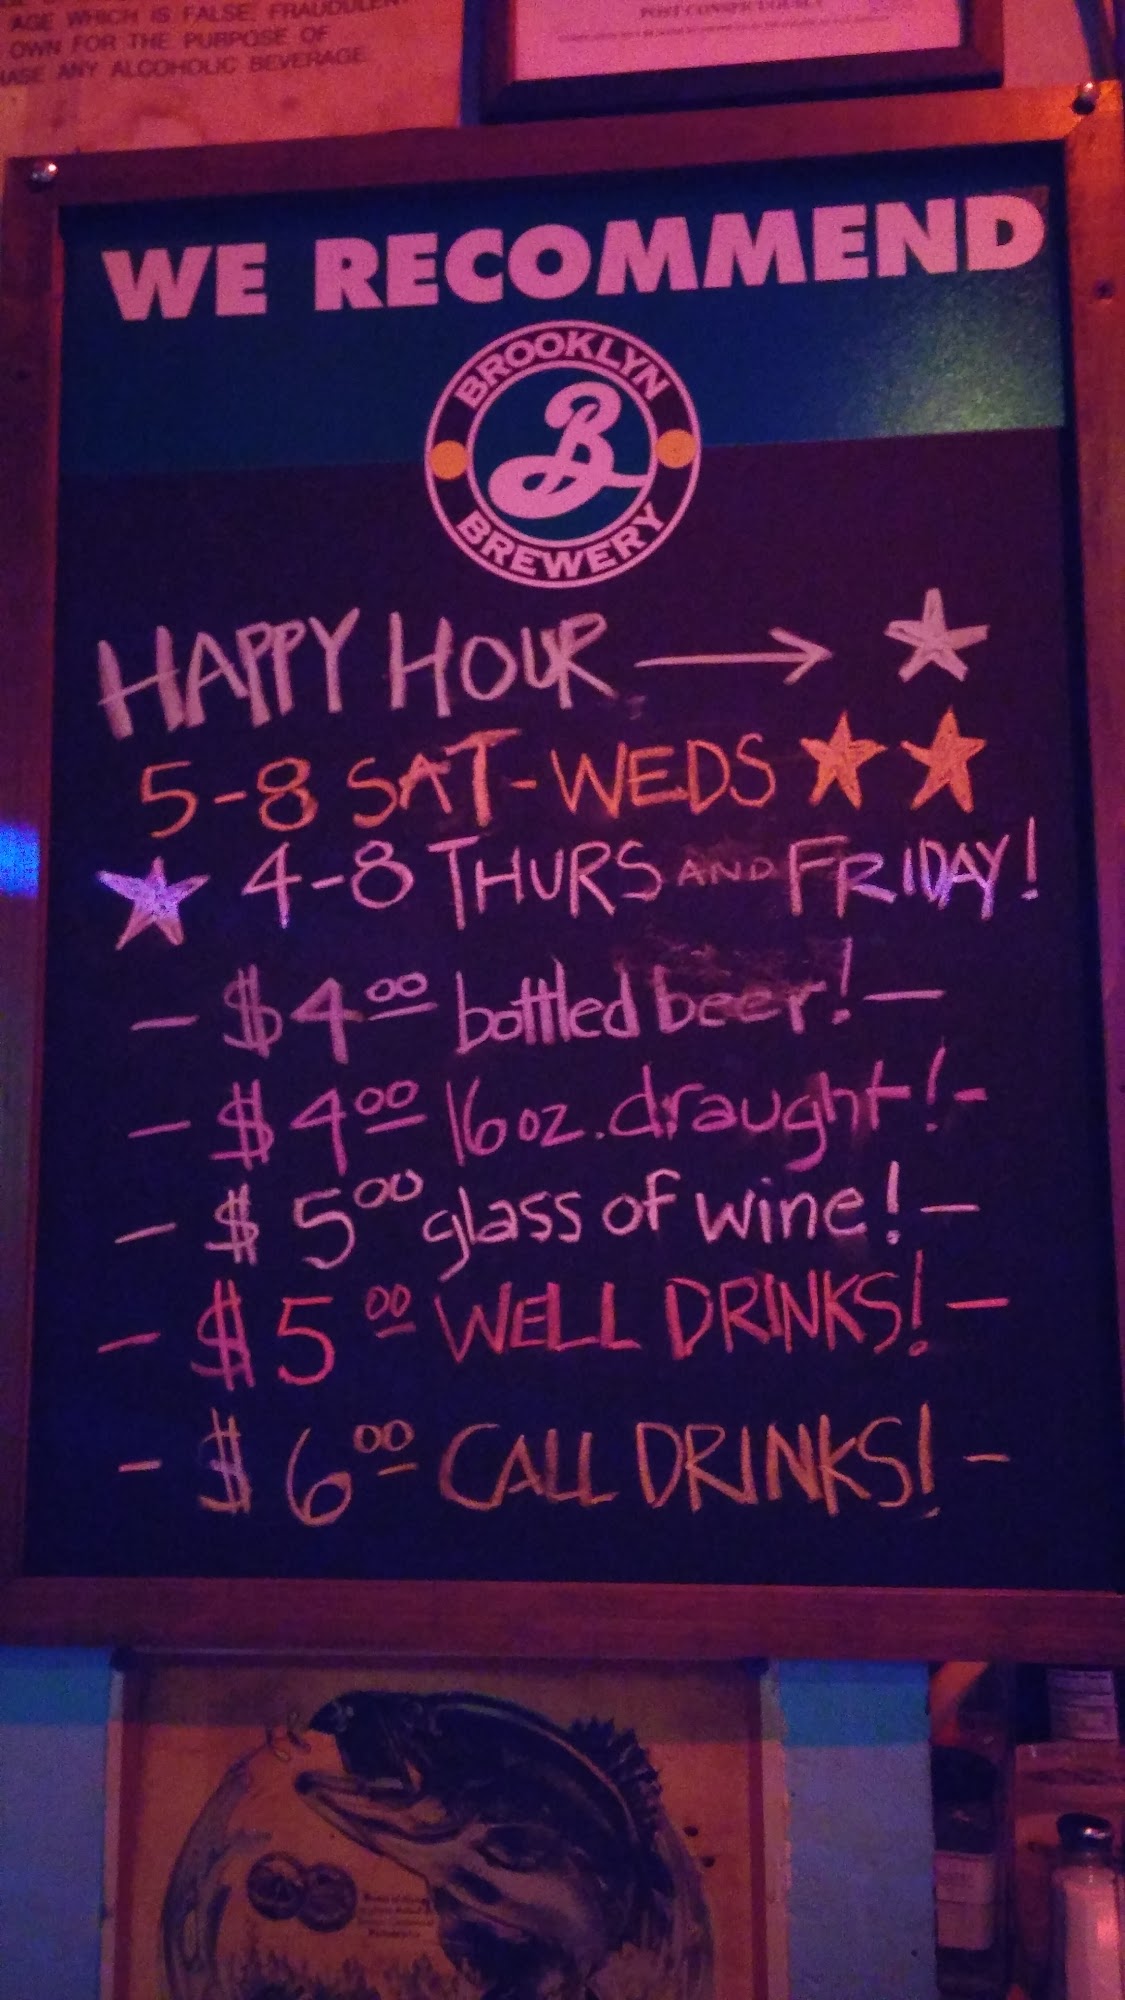 AGE WHICH IS FALSE, FRAUDULENT
OWN FOR THE PURPOSE OF
ANY ALCOHOLIC BEVERAGE
POST CONSPICUOUSLY
WE RECOMMEND
BROOKLYN
B
BREWERY
HAPPY HOUR →
5-8 SAT-WEDS
4-8 THURS AND FRIDAY!
- $4.00 bottled beer! -
- $4.00 16oz. draught! -
- $5.00 glass of wine! -
- $5.00 WELL DRINKS! -
- $6.00 CALL DRINKS! -